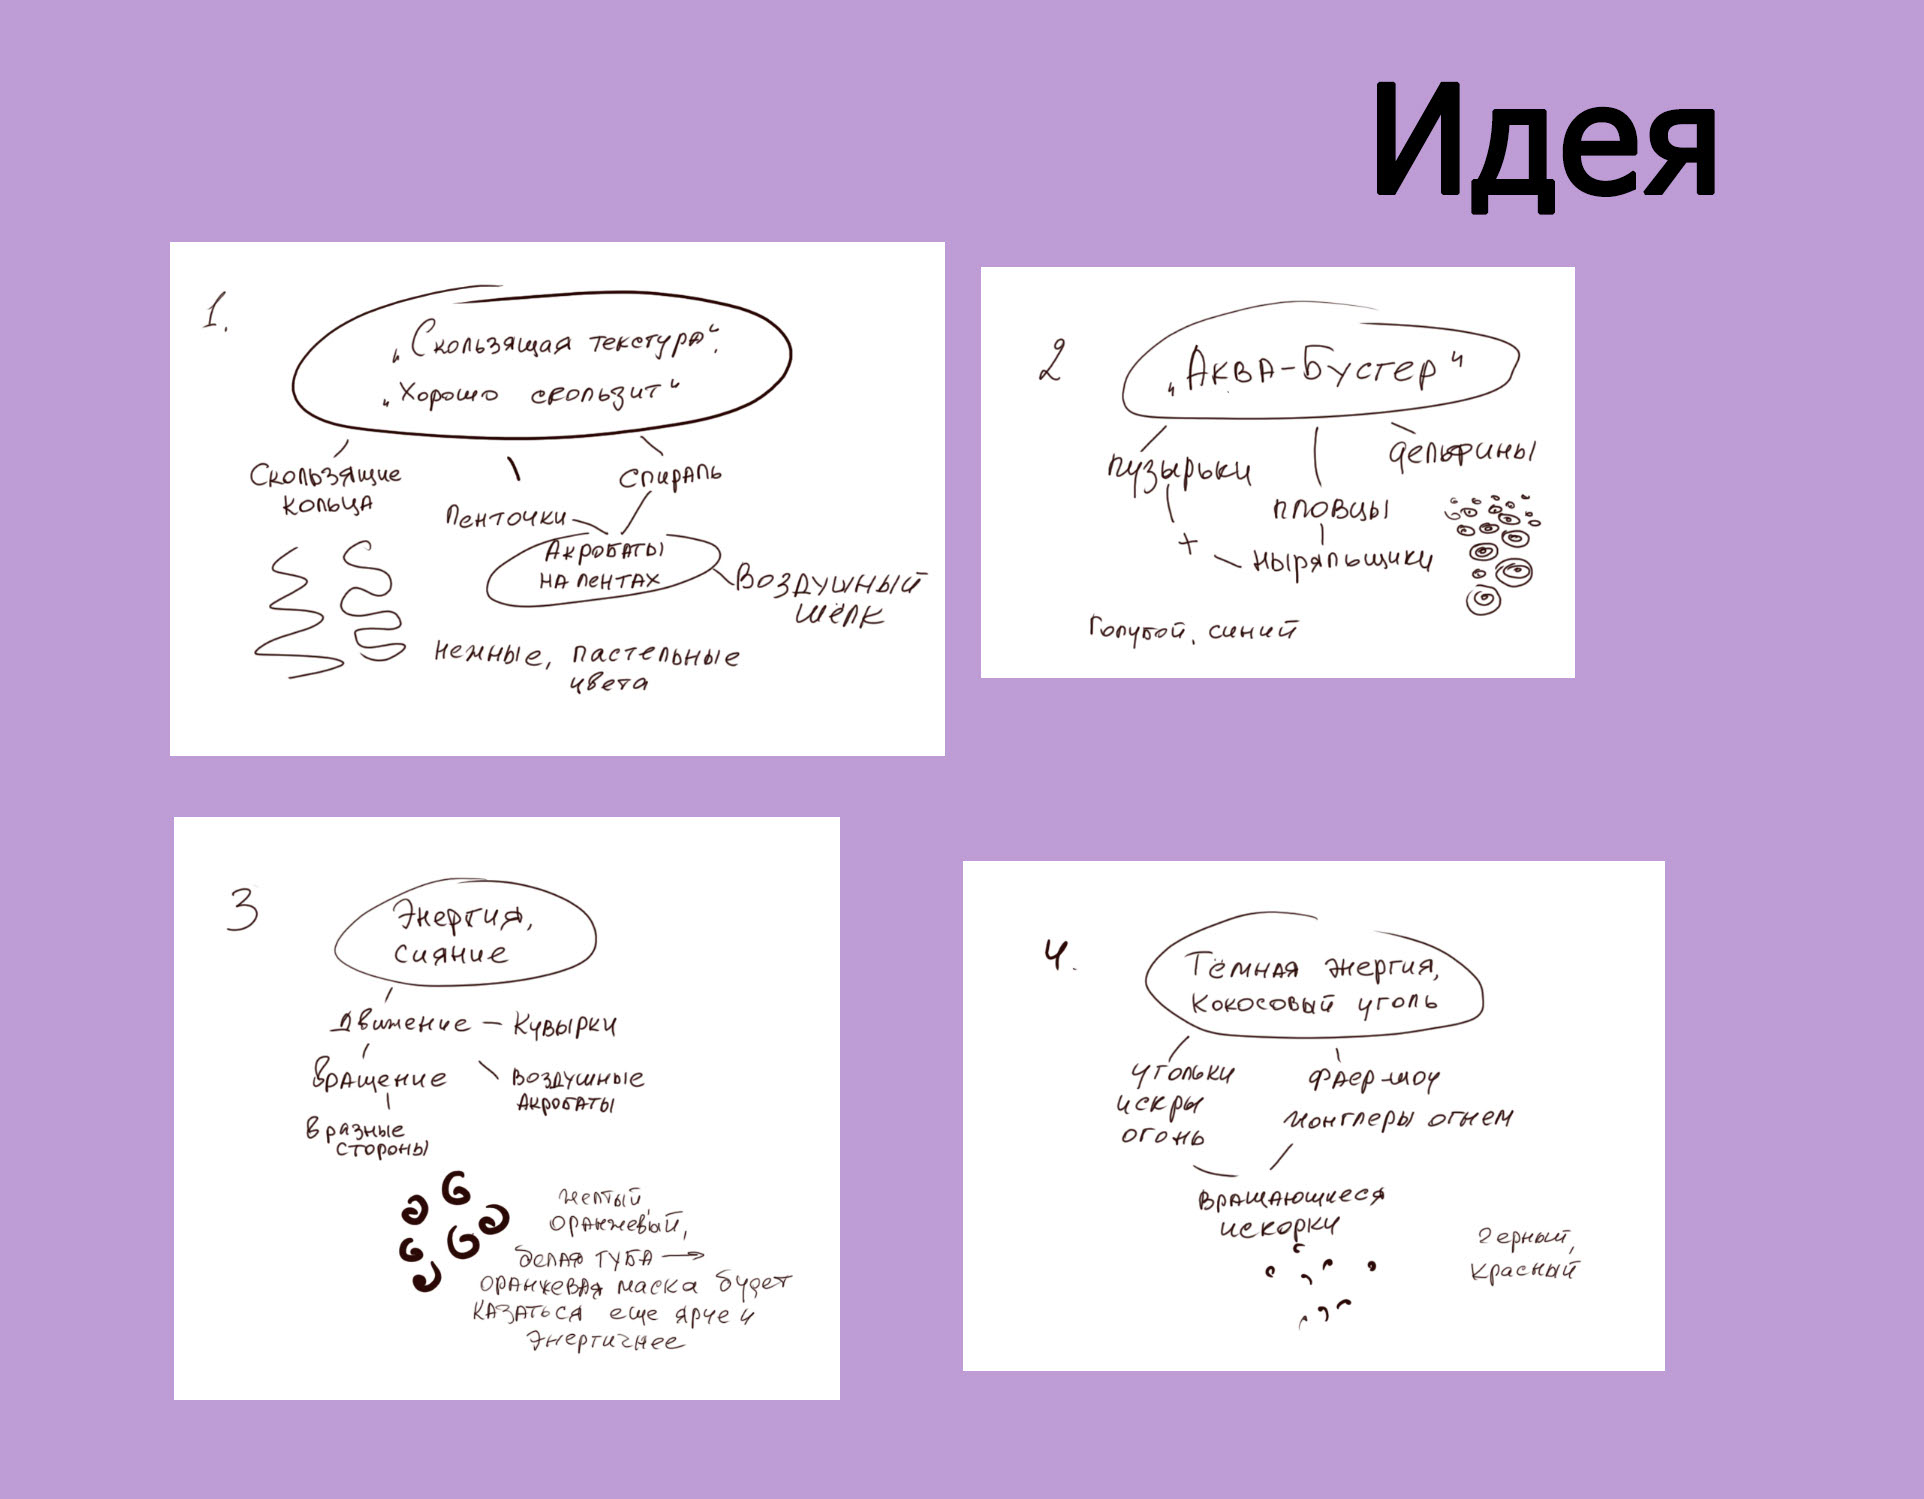 Идея
1.
„Скользящая текстура“.
„Хорошо скользит“
Скользящие
кольца
Ленточки
Спираль
Акробаты
на лентах
Воздушный
шёлк
нежные, пастельные
цвета
2
„Аква-Бустер“
пузырьки
дельфины
пловцы
+
ныряльщики
Голубой, синий
3
Энергия,
сияние
Движение – Кувырки
Вращение
Воздушные
Акробаты
В разные
стороны
желтый,
оранжевый,
белая туба →
оранжевая маска будет
казаться еще ярче и
энергичнее
4.
Тёмная энергия,
Кокосовый уголь
угольки
искры
огонь
фаер-шоу
жонглеры огнем
Вращающиеся
искорки
Черный,
красный